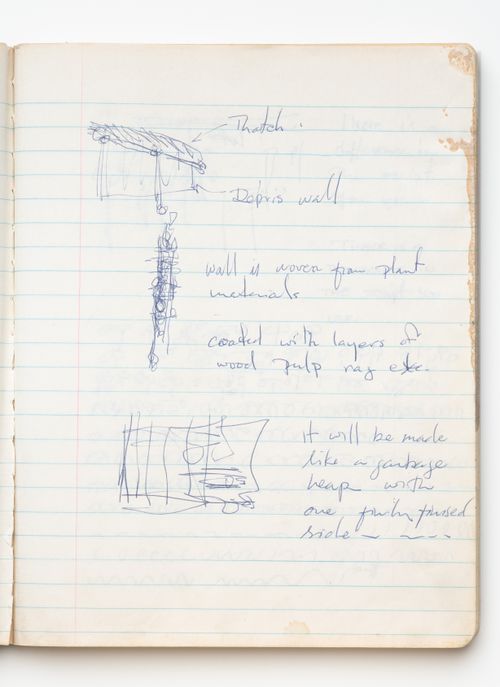 Thatch.
Debris wall
wall is woven from plant
materials
coated with layers of
wood pulp rag etc.
it will be made
like a garbage
heap with
one finised
side